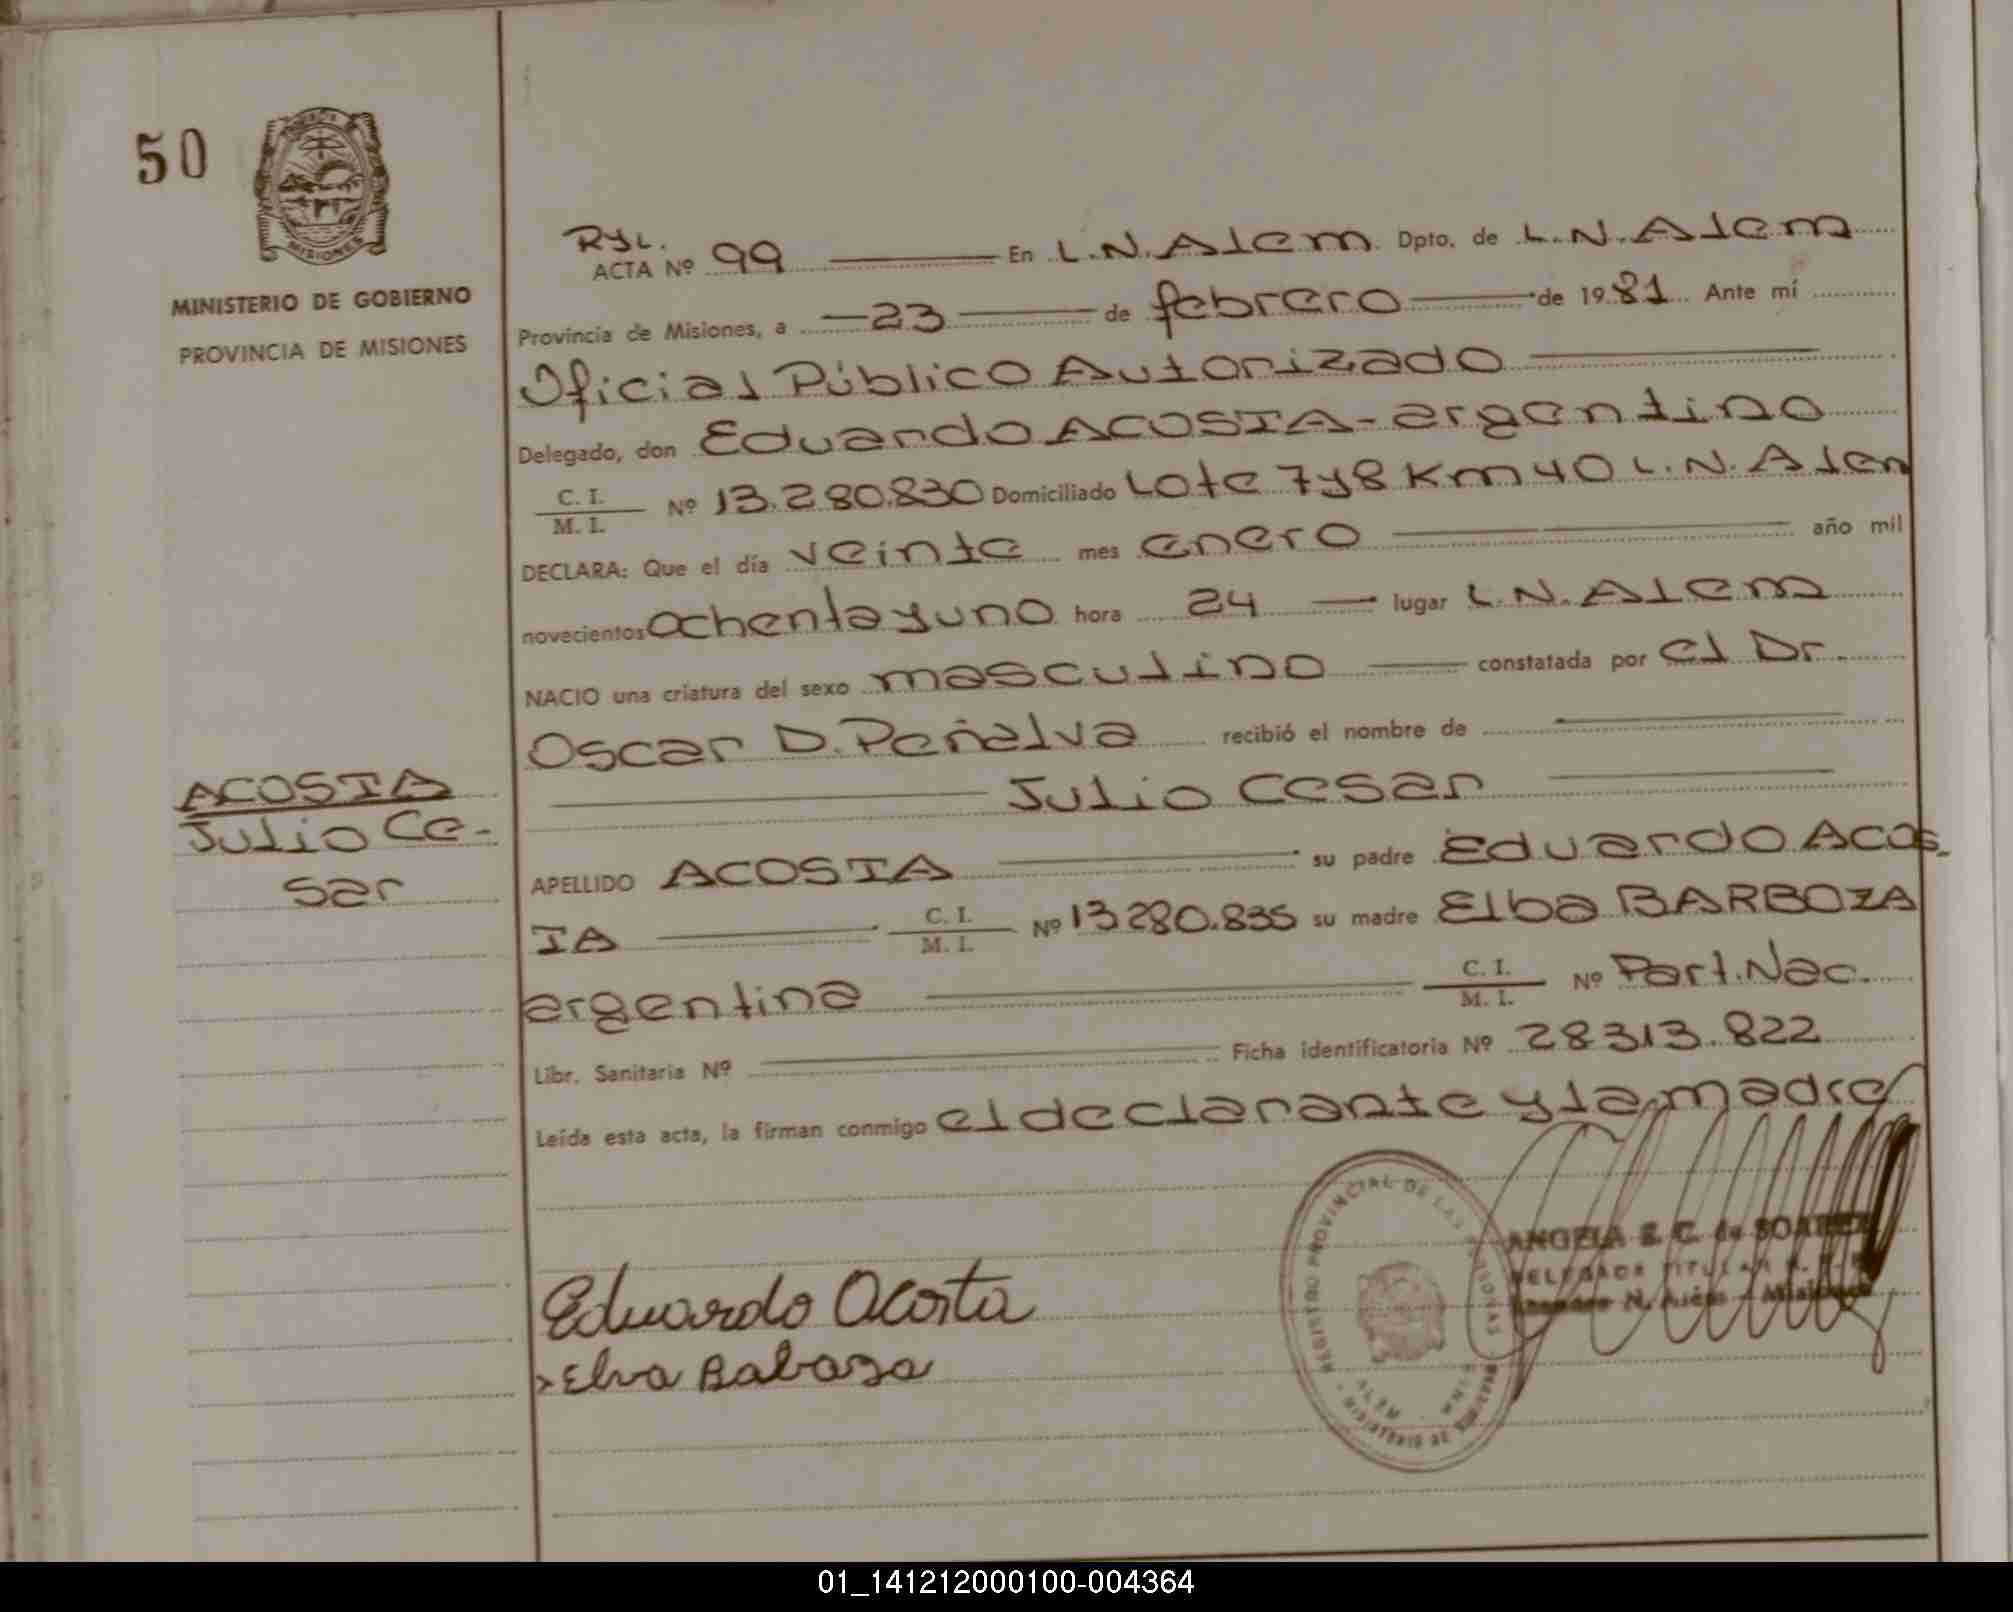 50
MISIONES
MINISTERIO DE GOBIERNO
PROVINCIA DE MISIONES
ACOSTA
Julio Ce-
sar
RyL.
ACTA Nº 99 En L.N.Alem Dpto. de L.N.Alem
Provincia de Misiones, a 23 de febrero de 1981 Ante mí
Oficial Público Autorizado
Delegado, don Eduardo ACOSTA-argentino
C. I.
M. I. Nº 13.280.830 Domiciliado Lote 7y8 Km 40 L.N.Alem
DECLARA: Que el día veinte mes enero año mil
novecientos ochentayuno hora 24 lugar L.N.Alem
NACIO una criatura del sexo masculino constatada por el Dr.
Oscar D.Peñalva recibió el nombre de
Julio Cesar
APELLIDO ACOSTA su padre Eduardo ACOS-
TA C. I.
M. I. Nº 13280.835 su madre Elba BARBOZA
argentina C. I.
M. I. Nº Part.Nac.
Libr. Sanitaria Nº Ficha identificatoria Nº 28313.822
Leída esta acta, la firman conmigo el declarante y la madre
Eduardo Acosta
Elva Babosa
REGISTRO PROVINCIAL DE LAS PERSONAS
ALEM MNES
MINISTERIO DE
ANGELA E. C. de SOAREZ
DELEGADA TITULAR
N. Alem - Misiones
01_141212000100-004364